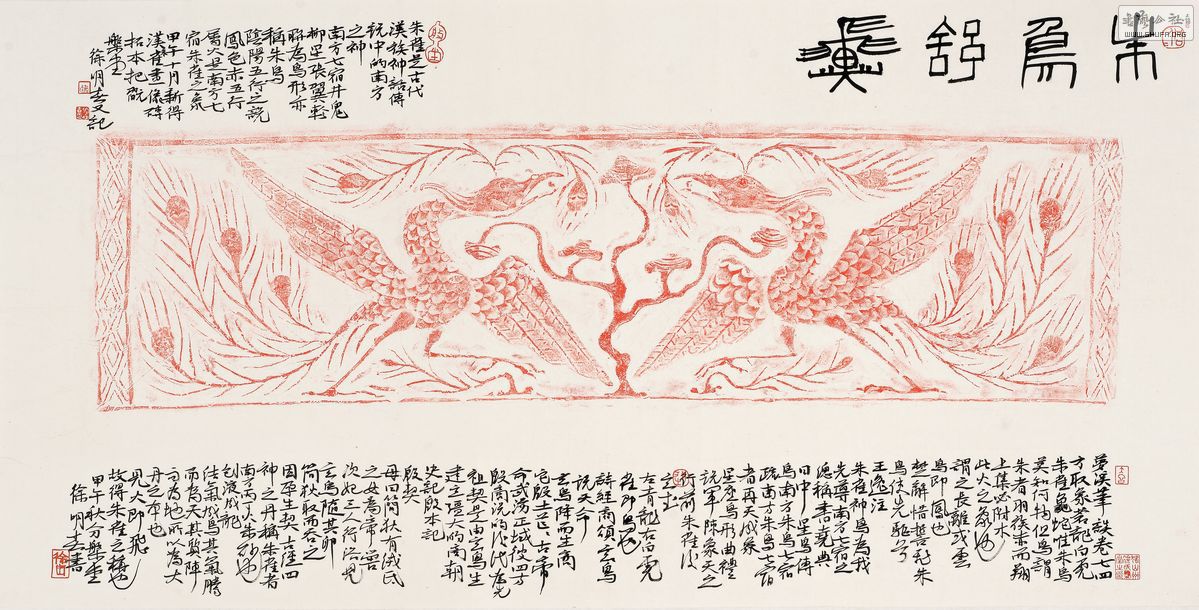 朱鳥舒翼
朱雀是古代
漢族神話傳
说中的南方
之神
南方七宿井鬼
柳星張翼軫
聯為鳥形亦
稱朱鳥
陰陽五行之説
鳳色赤五行
屬火是南方七
宿朱雀之象
甲午十月新得
漢雀畫像磚
拓本把翫
徐明 又記
夢溪筆談卷七四
方取象蒼龍白虎
朱雀龜蛇惟朱鳥
莫知何物但鳥謂
朱者羽族赤而翔
上集必附木
此火之象也
謂之長離或雲
鳥即鳳也
楚辭惜誓飛朱
鳥使先驅兮
王逸注
朱雀神鳥為我
先導南方七宿之
總稱書堯典
日中星鳥傳
鳥南方朱鳥七宿
疏南方朱鳥七宿
者再天成象
星座為鳥形曲禮
説軍陣象天之
行前朱雀後
玄武
左青龍右白虎
雀即鳥也
詩經商頌玄鳥
説天命
玄鳥降而生商
宅殷土芒芒古帝
命武湯正域彼四方
殷商説的後代在先
祖契是由玄鳥生
建立強大的商朝
史記殷本記
殷契
母曰簡狄有娀氏
之女為帝嚳
次妃三人行浴見
玄鳥墮其卵
簡狄取而吞之
因孕生契 四
神之丹稱朱雀者
南方丙丁火朱砂也
液成龍
結氣成鳥其氣騰
而為天其質降
而為地所以為大
丹之本也
見火即飛
故得朱雀之稱也
甲午秋分
徐明 書
WWW.SHUFA.ORG